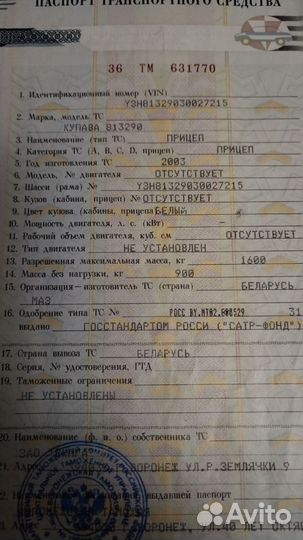 ПАСПОРТ ТРАНСПОРТНОГО СРЕДСТВА
36 ТМ 631770
1. Идентификационный номер (VIN)
Y3H81329030027215
2. Марка, модель ТС
КУПАВА 813290
3. Наименование (тип ТС) ПРИЦЕП
4. Категория ТС (А, В, С, D, прицеп) ПРИЦЕП
5. Год изготовления ТС 2003
6. Модель, № двигателя ОТСУТСТВУЕТ
7. Шасси (рама) № Y3H81329030027215
8. Кузов (кабина, прицеп) № ОТСУТСТВУЕТ
9. Цвет кузова (кабины, прицепа) БЕЛЫЙ
10. Мощность двигателя, л. с. (кВт)
11. Рабочий объем двигателя, куб. см ОТСУТСТВУЕТ
12. Тип двигателя НЕ УСТАНОВЛЕН
13. Разрешенная максимальная масса, кг 1600
14. Масса без нагрузки, кг 900
15. Организация—изготовитель ТС (страна) БЕЛАРУСЬ
МАЗ
16. Одобрение типа ТС № РОСС BY.МТ02.В00529 31
выдано ГОССТАНДАРТОМ РОССИ ("САТР-ФОНД")
17. Страна вывоза ТС БЕЛАРУСЬ
18. Серия, № удостоверения, ГТД
19. Таможенные ограничения
НЕ УСТАНОВЛЕНЫ
20. Наименование (ф. и. о.) собственника ТС
ЗАО
21. Адрес ВОРОНЕЖ УЛ.Р.ЗЕМЛЯЧКИ 9
выдавшей паспорт
УЛ.40 ЛЕТ ОКТЯ
Avito